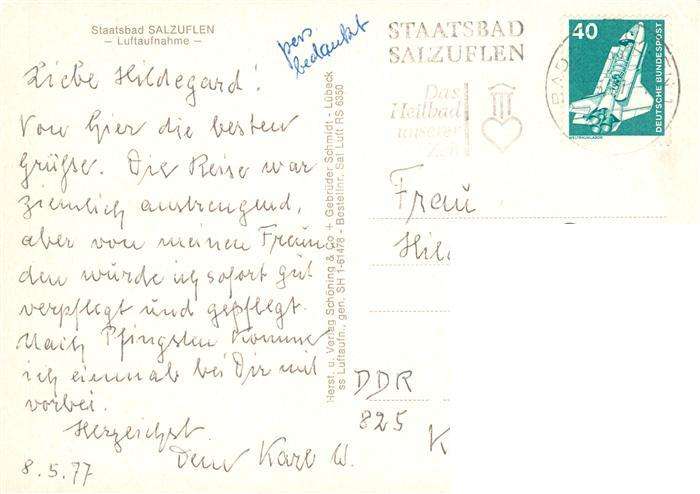 Staatsbad SALZUFLEN
– Luftaufnahme –
pers.
bedankt
Liebe Hildegard!
Von hier die besten
Grüße. Die Reise war
ziemlich anstrengend,
aber von meinen Freun
den würde ich sofort gut
verpflegt und gepflegt.
Nach Pfingsten komme
ich einmal bei Dir mit
vorbei.
Herzlichst
Dein Karl W.
8.5.77
Herst. u. Verlag Schöning & Co + Gebrüder Schmidt - Lübeck
ss Luftaufn., gen. SH 1-61478 - Bestellnr. Sal Luft RS 6350
STAATSBAD
SALZUFLEN
Das
Heilbad
unserer
Zeit
BAD
40
DEUTSCHE BUNDESPOST
WELTRAUMLABOR
Frau
Hil
DDR
825 K